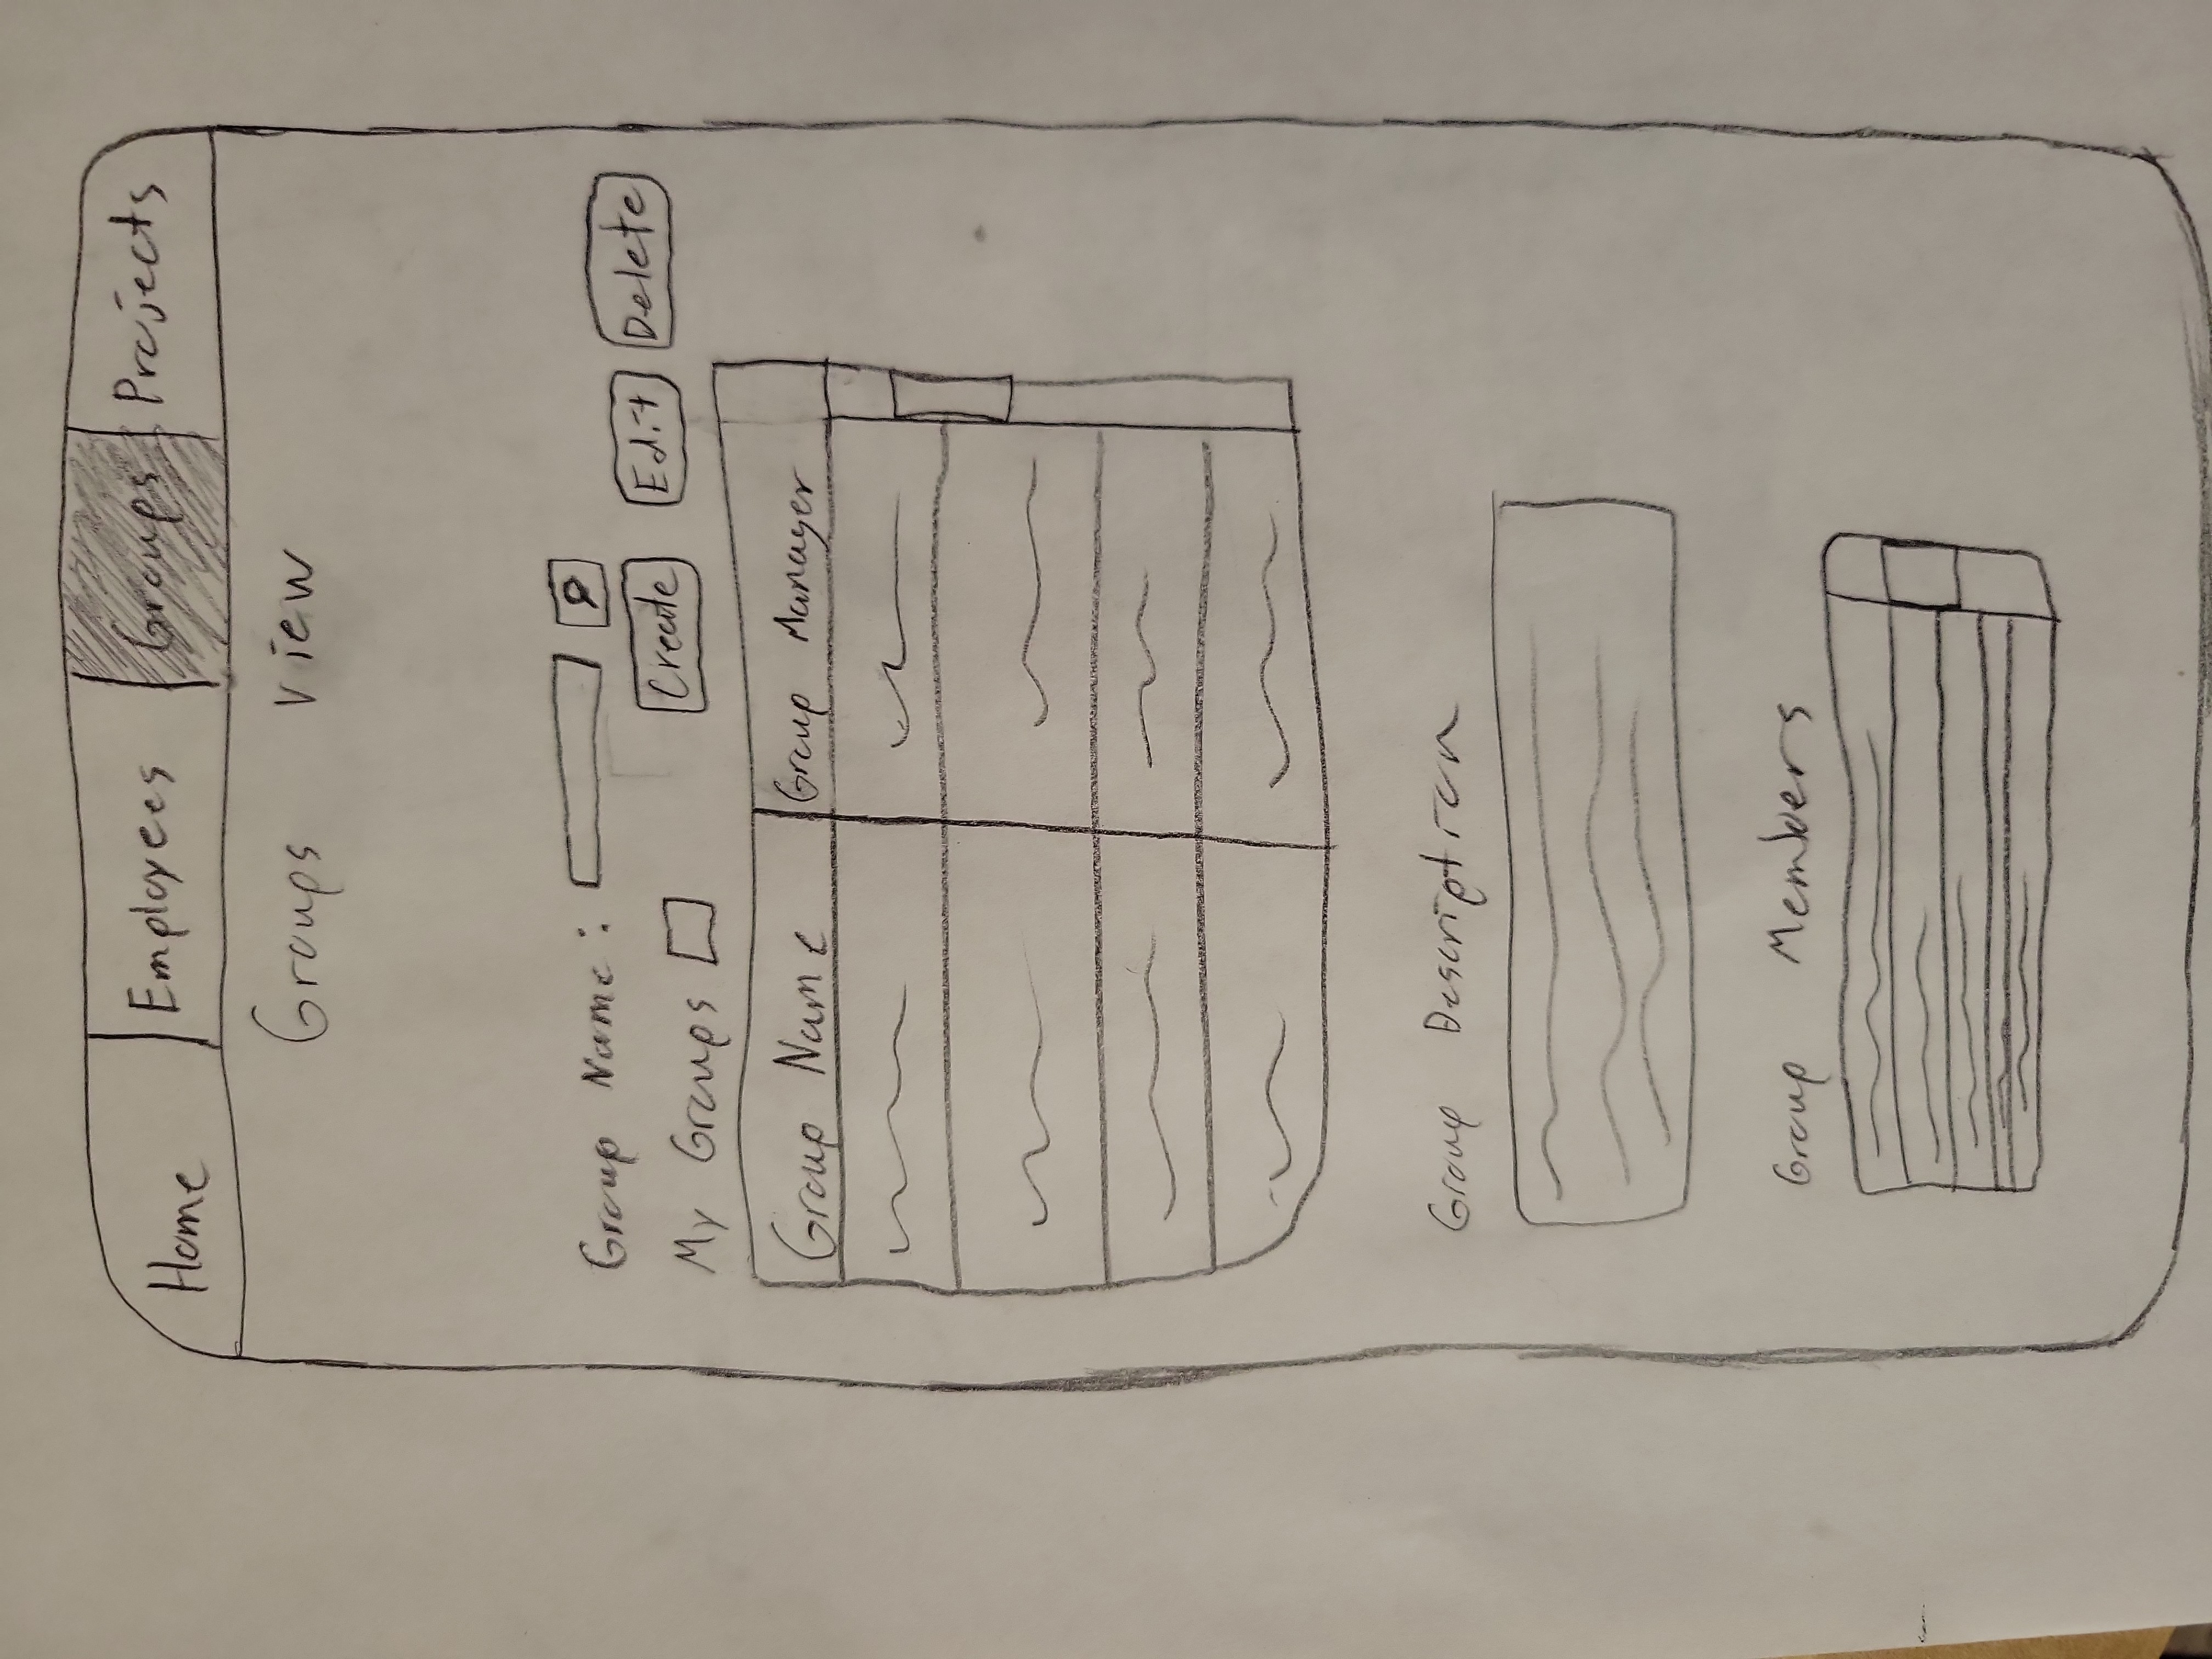 Home Employees Groups Projects
Groups View
Group Name:
My Groups Create Edit Delete
Group Name Group Manager
Group Description
Group Members